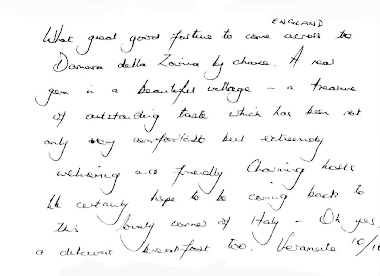 ENGLAND
What great good fortune to come across the
Damora della Zaina by chance. A real
gem in a beautiful village - a treasure
of outstanding taste which has been not
only very comfortable but extremely
welcoming and friendly. Charming hosts
We certainly hope to be coming back to
this lovely corner of Italy - Oh yes,
a delicious breakfast too.